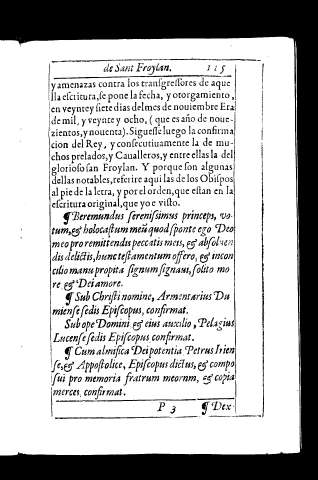 de Sant Froylan. 115
y amenazas contra los transgressores de aque
lla escritura, se pone la fecha, y otorgamiento,
en veynte y siete dias del mes de nouiembre Era
de mil, y veynte y ocho, (que es año de noue-
zientos, y nouenta). Siguesse luego la confirma
cion del Rey, y consecutiuamente la de mu-
chos prelados, y Caualleros, y entre ellas la del
glorioso san Froylan. Y porque son algunas
dellas notables, referire aqui las de los Obispos
al pie de la letra, y por el orden, que estan en la
escritura original, que yo è visto.
¶ Beremundus serenissimus princeps, vo-
tum, & holocaustum meũ quod sponte ego Deo
meo pro remittendis peccatis meis, & absoluen
dis delictis, hunc testamentum offero, & incon
cilio manu propita signum signaui, solito mo
re & Dei amore.
¶ Sub Christi nomine, Armentarius Du
miense sedis Episcopus, confirmat.
Sub ope Domini & eius auxilio, Pelagius
Lucense sedis Episcopus confirmat.
¶ Cum almifica Dei potentia Petrus Irien
se, & Appostolice, Episcopus dictus, & compo
sui pro memoria fratrum meorum, & copia
merces, confirmat.
P 3 ¶ Dex-